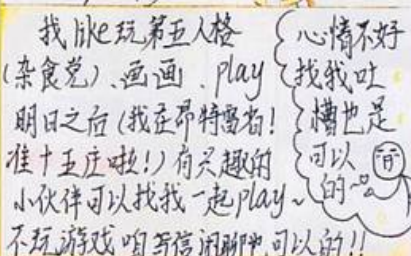 我like玩第五人格
(杂食党)、画画、play
明日之后(我在昂特雷省!
准十五庄啦!)有兴趣的
小伙伴可以找我一起play~
不玩游戏咱写信闲聊也可以的!!
心情不好
找我吐
槽也是
可以
的~